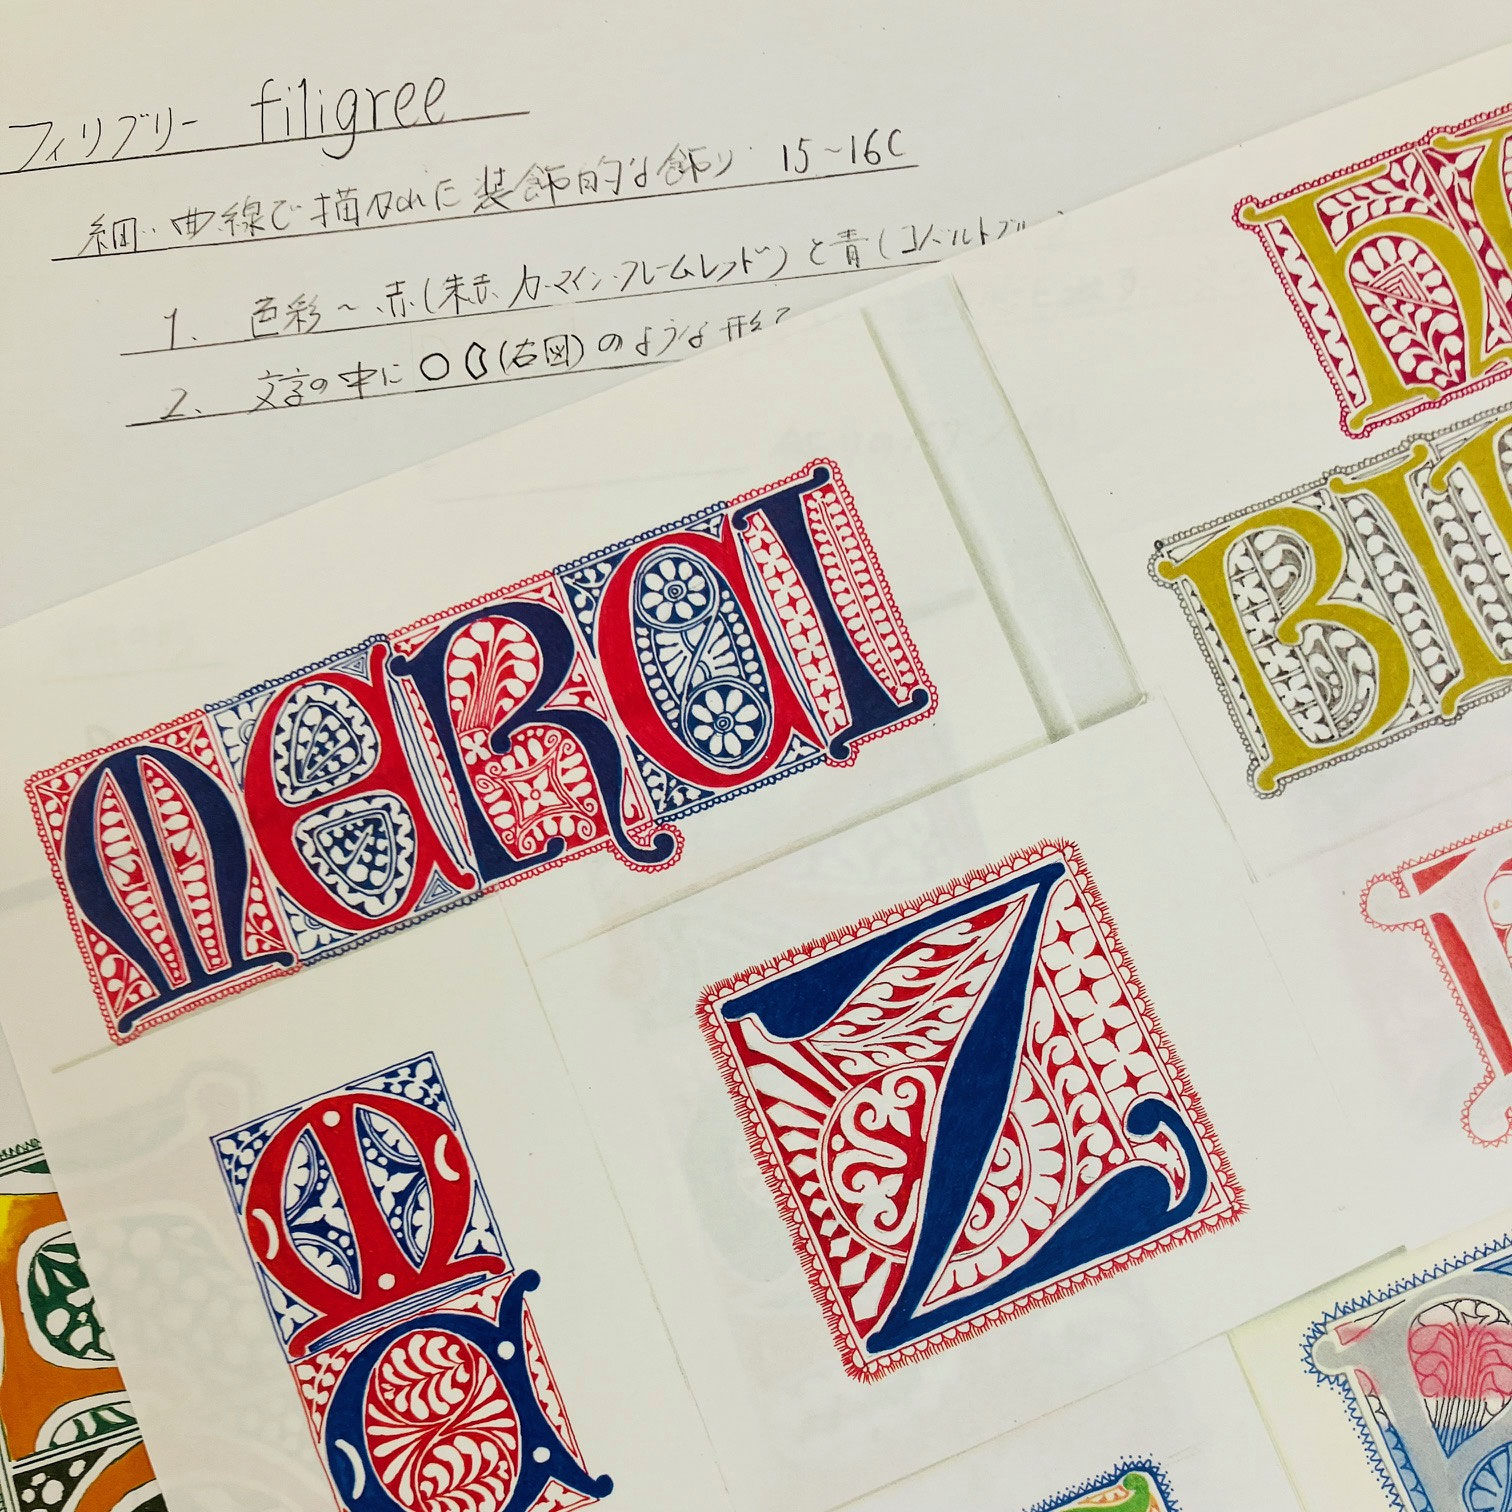 フィリブリー filigree
細い曲線で描かれた装飾的な飾り 15~16C
1. 色彩~赤(朱赤、カーマイン・フレームレッド)と青(コバルトブルー
2. 文字の中に〇(右図)のような形
MERCI
BI
Z
M